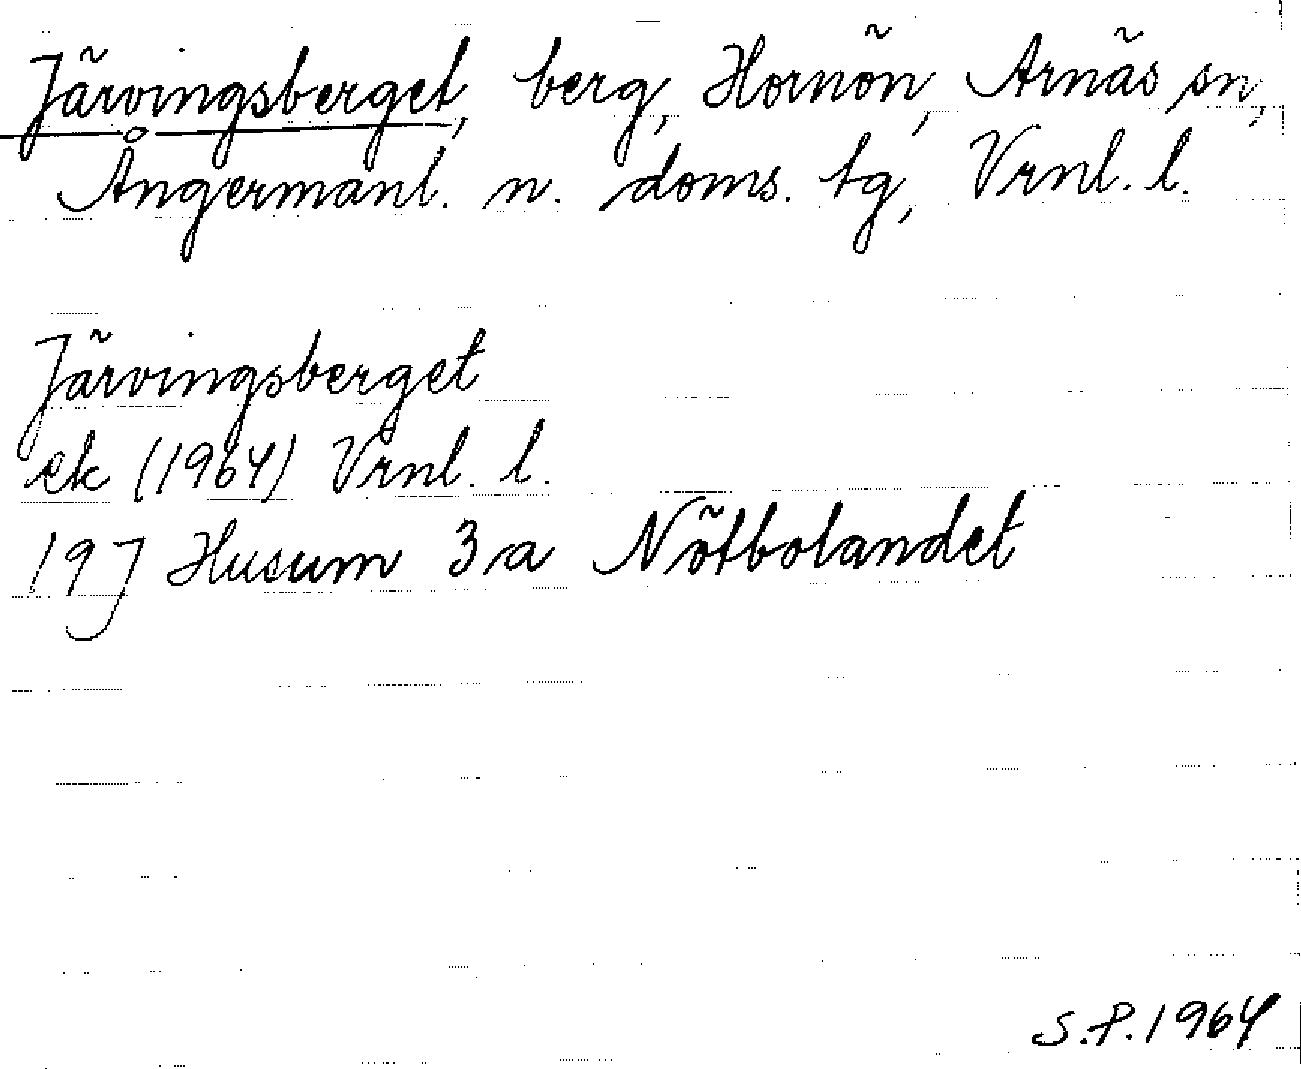 Järvingsberget, berg, Hornön, Arnäs sn,
Ångermanl. n. doms. tg, Vrnl. l.
Järvingsberget
ek (1964) Vrnl. l.
19J Husum 3a Nötbolandet
S.P. 1964